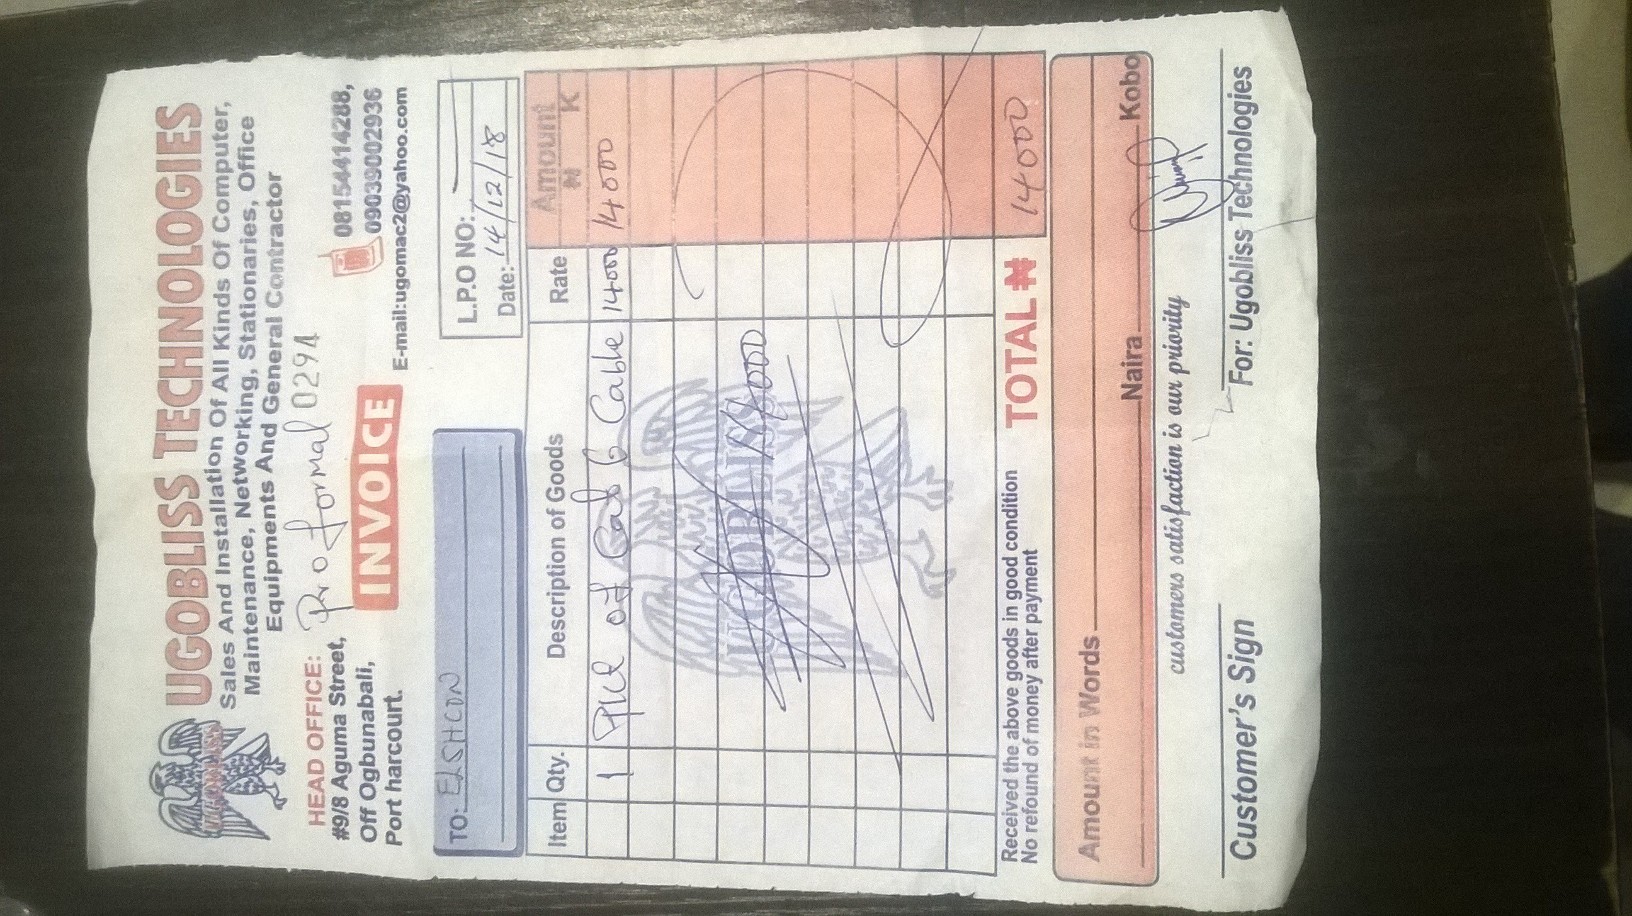 UGOBLISS TECHNOLOGIES
UGOBLISS
Sales And Installation Of All Kinds Of Computer,
Maintenance, Networking, Stationaries, Office
Equipments And General Contractor
HEAD OFFICE:
#9/8 Aguma Street,
Off Ogbunabali,
Port harcourt.
Pro formal 0294
INVOICE
08154414288,
09039002936
E-mail:ugomac2@yahoo.com
TO: ELSHCON
L.P.O NO:
Date: 14/12/18
Item Qty. Description of Goods Rate Amount
₦ K
1 of Cat 6 Cable 14000 14000
UGOBLISS
Received the above goods in good condition
No refund of money after payment
TOTAL ₦ 14000
Amount in Words
Naira Kobo
customers satisfaction is our priority
Customer's Sign
For: Ugobliss Technologies